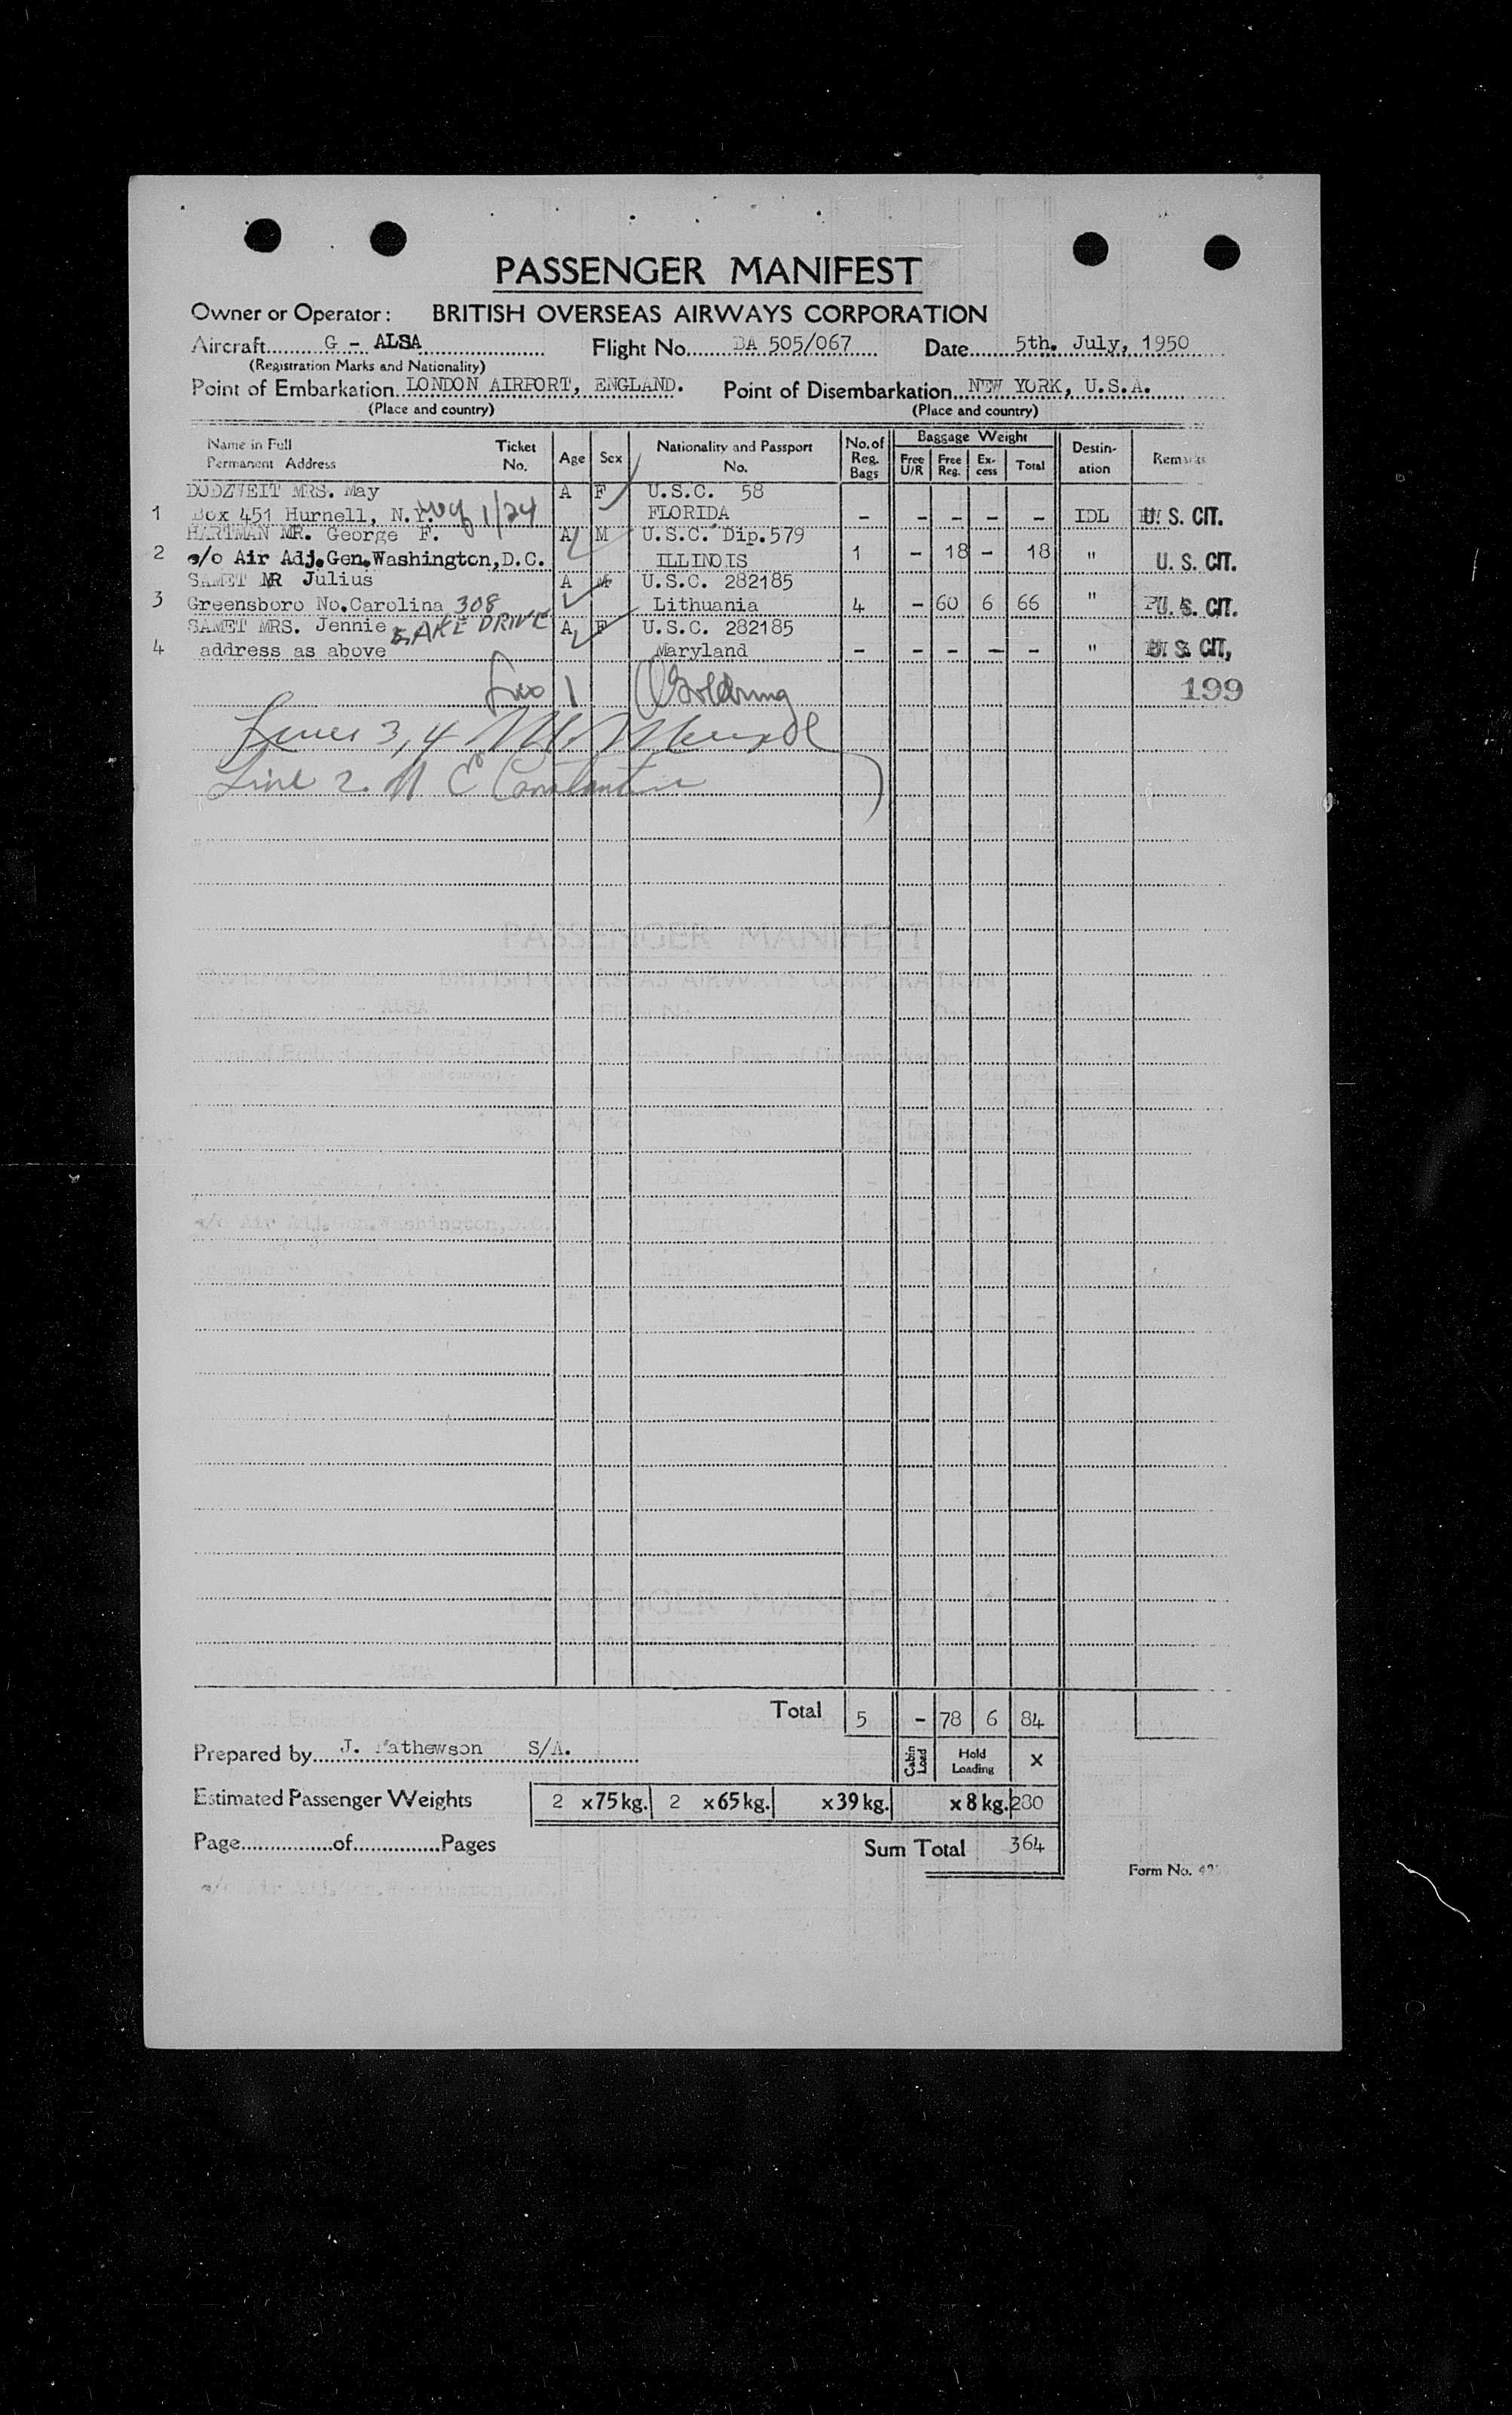 PASSENGER MANIFEST
Owner or Operator: BRITISH OVERSEAS AIRWAYS CORPORATION
Aircraft G - ALSA Flight No. BA 505/067 Date 5th. July, 1950
(Registration Marks and Nationality)
Point of Embarkation LONDON AIRPORT, ENGLAND. Point of Disembarkation NEW YORK, U.S.A.
(Place and country) (Place and country)
Name in Full Permanent Address Ticket No. Age Sex Nationality and Passport No. No. of Reg. Bags Baggage Weight Free U/R Free Reg. Ex-cess Total Destin-ation Remarks
DODZWEIT MRS. May A F U.S.C. 58
1 Box 451 Hurnell, N.Y. 1/24 FLORIDA - - - - - IDL U. S. CIT.
HARTMAN MR. George F. A M U.S.C. Dip.579
2 c/o Air Adj.Gen.Washington,D.C. ILLINOIS 1 - 18 - 18 " U. S. CIT.
SAMET MR Julius A M U.S.C. 282185
3 Greensboro No.Carolina 308 Lithuania 4 - 60 6 66 " U. S. CIT.
SAMET MRS. Jennie LAKE DRIVE A F U.S.C. 282185
4 address as above Maryland - - - - - " U. S. CIT,
1 Goldring 199
Lines 3, 4
Line 2. E Constantine
Total 5 - 78 6 84
Prepared by J. Mathewson S/A. Cabin Load Hold Loading X
Estimated Passenger Weights 2 x75kg. 2 x65kg. x39kg. x8kg. 280
Page of Pages Sum Total 364
Form No.